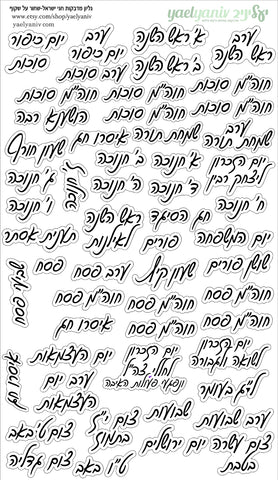 גליון מדבקות חגי ישראל-שחור על שקוף
www.etsy.com/shop/yaelyaniv
yaelyaniv.com
yaelyaniv יעליניב
ערב ראש השנה
א' ראש השנה
ב' ראש השנה
ערב יום כיפור
יום כיפור
ערב סוכות
סוכות
חוה"מ סוכות
חוה"מ סוכות
חוה"מ סוכות
חוה"מ סוכות
חוה"מ סוכות
הושענא רבה
ערב שמחת תורה
שמחת תורה
איסרו חג
שעון חורף
יום הזכרון ליצחק רבין
א' חנוכה
ב' חנוכה
ג' חנוכה
ד' חנוכה
ה' חנוכה
ו' חנוכה
ז' חנוכה
ח' חנוכה
חג הסיגד
ראש השנה לאילנות
תענית אסתר
יום המשפחה
פורים
שושן פורים
שעון קיץ
ערב פסח
פסח
חוה"מ פסח
חוה"מ פסח
חוה"מ פסח
חוה"מ פסח
חוה"מ פסח
שביעי פסח
איסרו חג
יום הזכרון לשואה ולגבורה
יום הזכרון לחללי צה"ל
ונפגעי פעולות האיבה
ערב יום העצמאות
יום העצמאות
ל"ג בעומר
ערב שבועות
שבועות
איסרו חג
יום ירושלים
צום י"ז בתמוז
צום ט' באב
ט"ו באב
צום גדליה
צום עשרה בטבת